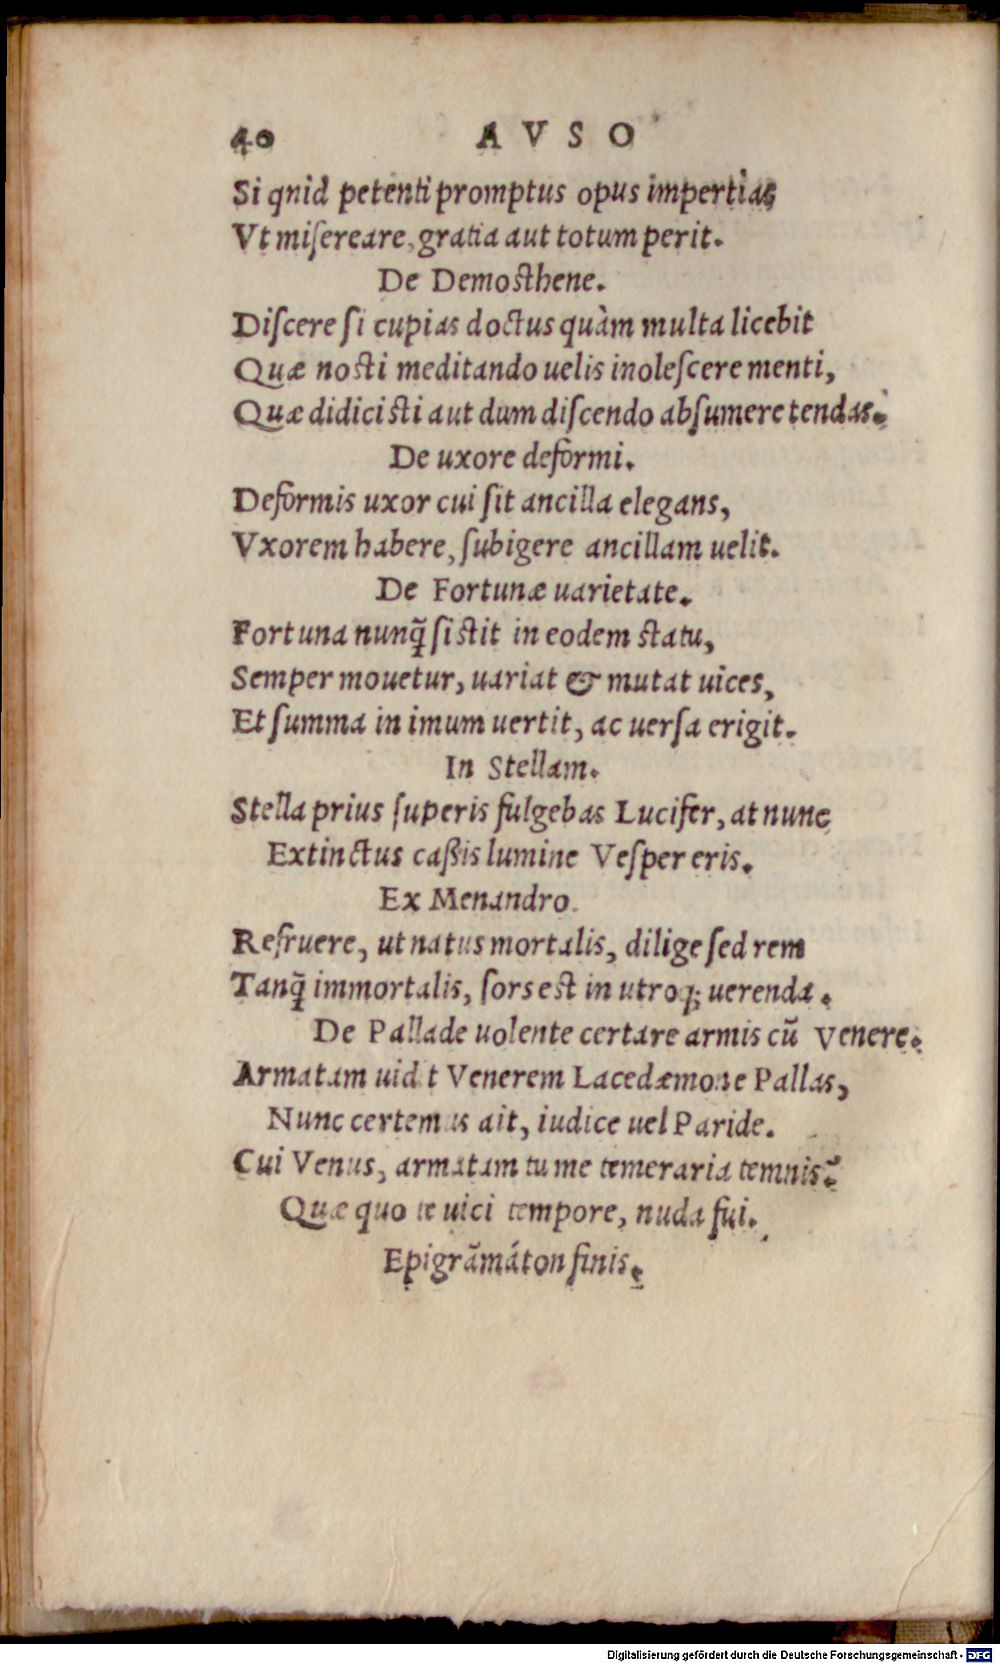 40 AVSO
Si qnid petenti promptus opus impertias
Vt miſereare, gratia aut totum perit.
De Demosthene.
Diſcere ſi cupias doctus quàm multa licebit
Quæ nosti meditando uelis inoleſcere menti,
Quæ didicisti aut dum diſcendo abſumere tendas.
De uxore deformi.
Deformis uxor cui ſit ancilla elegans,
Vxorem habere, ſubigere ancillam uelit.
De Fortunæ uarietate.
Fortuna nunq̃ ſistit in eodem statu,
Semper mouetur, uariat & mutat uices,
Et ſumma in imum uertit, ac uerſa erigit.
In Stellam.
Stella prius ſuperis fulgebas Lucifer, at nunc
Extinctus caßis lumine Veſper eris.
Ex Menandro.
Re,fruere, ut natus mortalis, dilige ſed rem
Tanq̃ immortalis, ſors est in utroq; uerenda.
De Pallade uolente certare armis cũ Venere.
Armatam uidit Venerem Lacedæmone Pallas,
Nunc certemus ait, iudice uel Paride.
Cui Venus, armatam tu me temeraria temnis?
Quæ quo te uici tempore, nuda fui.
Epigrãmáton finis.
Digitalisierung gefördert durch die Deutsche Forschungsgemeinschaft - DFG